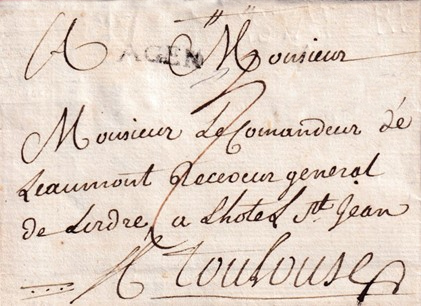 A Monsieur
AGEN
Monsieur Le Comandeur dé
Leaumont Receveur general
de Lordre, a Lhotel St Jean
A Toulouse